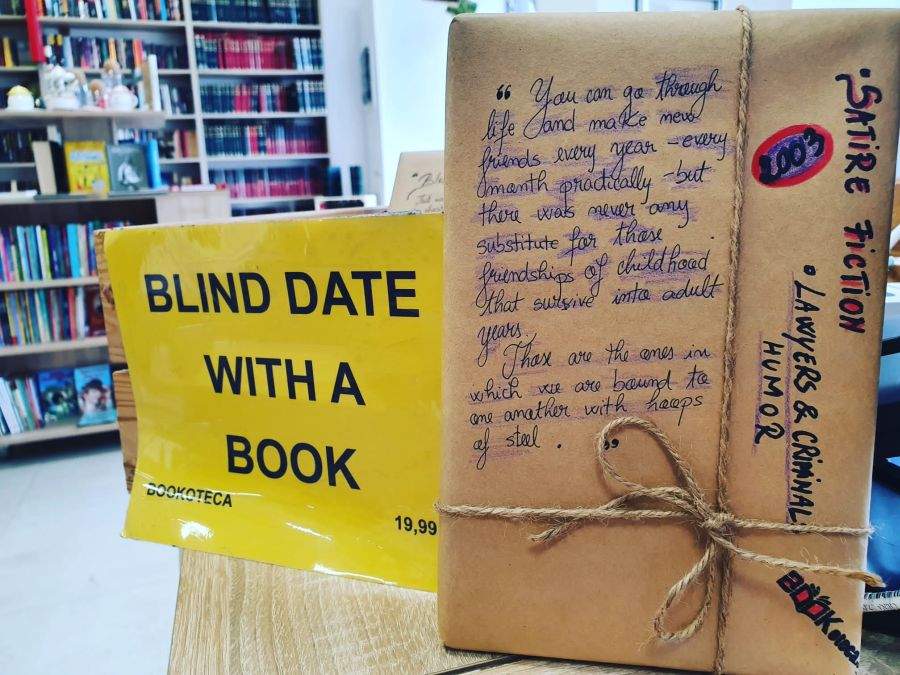 BLIND DATE
WITH A
BOOK
BOOKOTECA
19,99
“ You can go through
life and make new
friends every year - every
month practically - but
there was never any
substitute for those
friendships of childhood
that survive into adult
years.
Those are the ones in
which we are bound to
one another with hoops
of steel. ”
• SATIRE FICTION
• LAWYERS & CRIMINAL
HUMOR